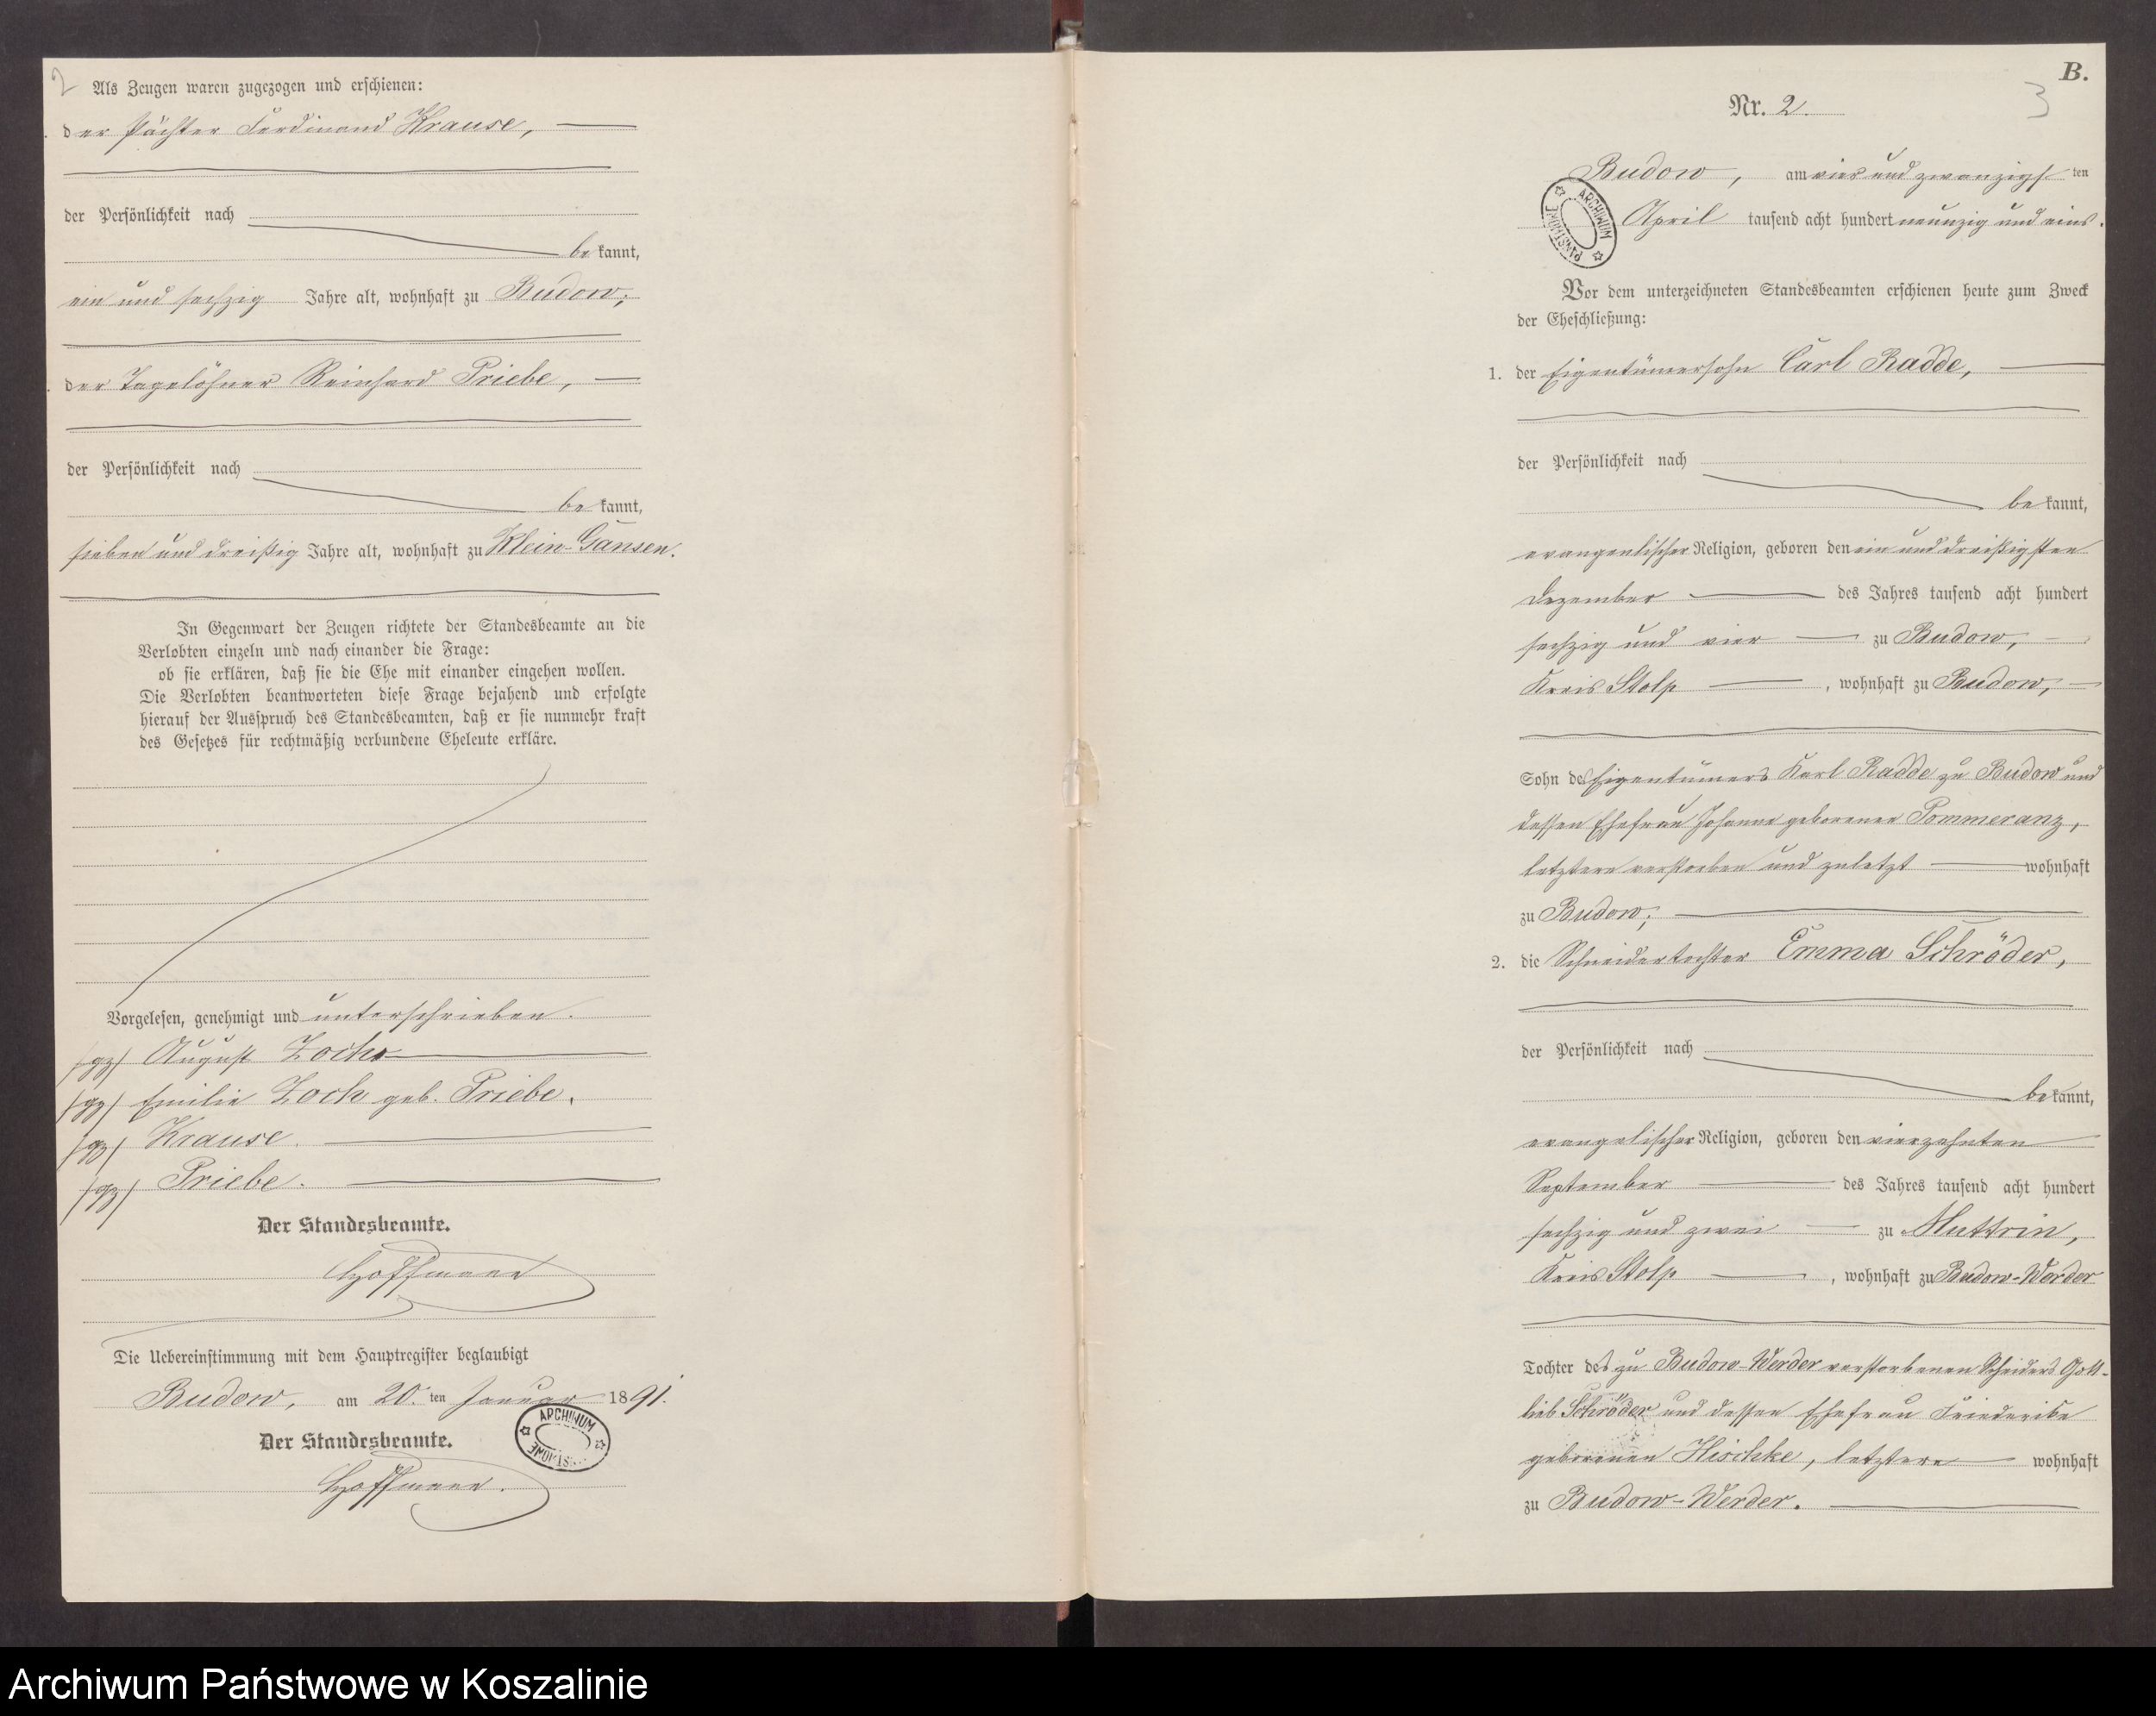 2 Als Zeugen waren zugezogen und erschienen:
der Pächter Ferdinand Krause,
der Persönlichkeit nach
be kannt,
ein und sechzig Jahre alt, wohnhaft zu Budow;
der Tagelöhner Reinhard Priebe,
der Persönlichkeit nach
be kannt,
sieben und dreißig Jahre alt, wohnhaft zu Klein-Gansen.
In Gegenwart der Zeugen richtete der Standesbeamte an die
Verlobten einzeln und nach einander die Frage:
ob sie erklären, daß sie die Ehe mit einander eingehen wollen.
Die Verlobten beantworteten diese Frage bejahend und erfolgte
hierauf der Ausspruch des Standesbeamten, daß er sie nunmehr kraft
des Gesetzes für rechtmäßig verbundene Eheleute erkläre.
Vorgelesen, genehmigt und unterschrieben.
/gz/ August Zoch
/gz/ Emilie Zoch geb. Priebe.
/gz/ Krause.
/gz/ Priebe.
Der Standesbeamte.
Hoffmann
Die Uebereinstimmung mit dem Hauptregister beglaubigt
Budow, am 20. ten Januar 1891.
ARCHIWUM
Der Standesbeamte.
Hoffmann.
B.
Nr. 2.
3
Budow, am vier und zwanzigs ten
ARCHIWUM PAŃSTWOWE
April tausend acht hundert neunzig und eins.
Vor dem unterzeichneten Standesbeamten erschienen heute zum Zweck
der Eheschließung:
1. der Eigentümersohn Carl Radde,
der Persönlichkeit nach
be kannt,
evangelischer Religion, geboren den ein und dreißigsten
Dezember des Jahres tausend acht hundert
sechzig und vier zu Budow,
Kreis Stolp, wohnhaft zu Budow,
Sohn des Eigentümers Karl Radde zu Budow und
dessen Ehefrau Johanne geborenen Pommeranz,
letztere verstorben und zuletzt wohnhaft
zu Budow;
2. die Schneidertochter Emma Schröder,
der Persönlichkeit nach
be kannt,
evangelischer Religion, geboren den vierzehnten
September des Jahres tausend acht hundert
sechzig und zwei zu Muttrin,
Kreis Stolp, wohnhaft zu Budow-Werder
Tochter des zu Budow-Werder verstorbenen Schneiders Gott-
lieb Schröder und dessen Ehefrau Friederike
geborenen Hischke, letztere wohnhaft
zu Budow-Werder.
Archiwum Państwowe w Koszalinie